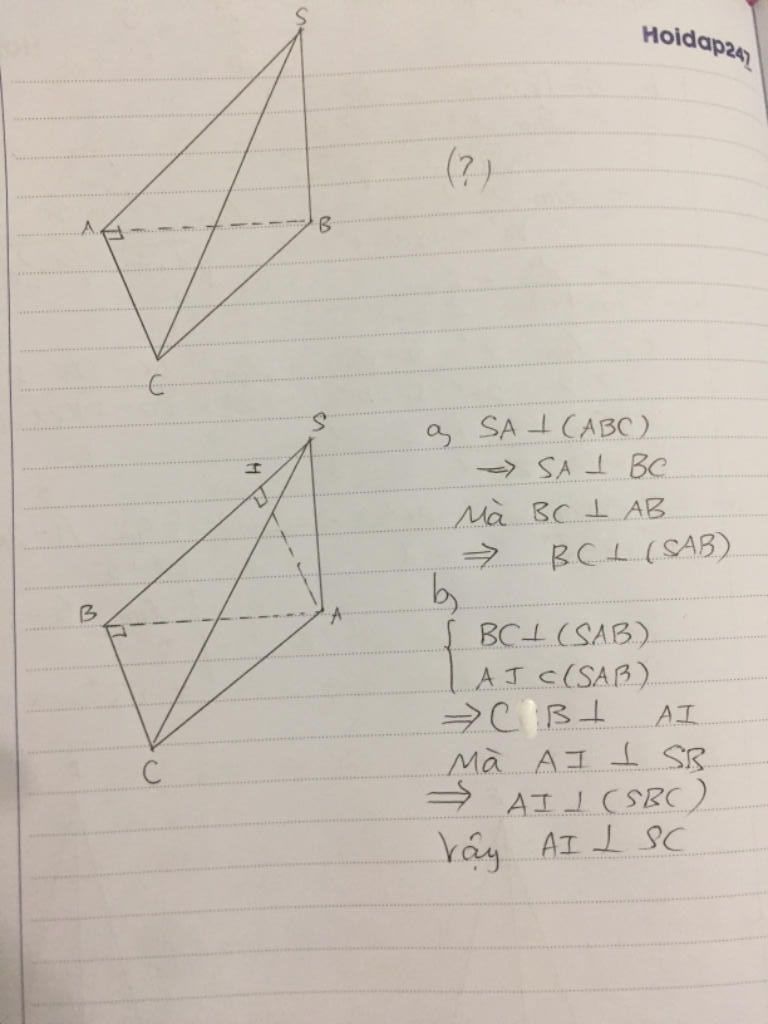 Hoidap247
S
(?)
A
B
C
S
a, SA ⊥ (ABC)
I
⇒ SA ⊥ BC
Mà BC ⊥ AB
⇒ BC ⊥ (SAB)
b,
B
A
{ BC ⊥ (SAB)
AI ⊂ (SAB)
⇒ CB ⊥ AI
Mà AI ⊥ SB
C
⇒ AI ⊥ (SBC)
Vậy AI ⊥ SC